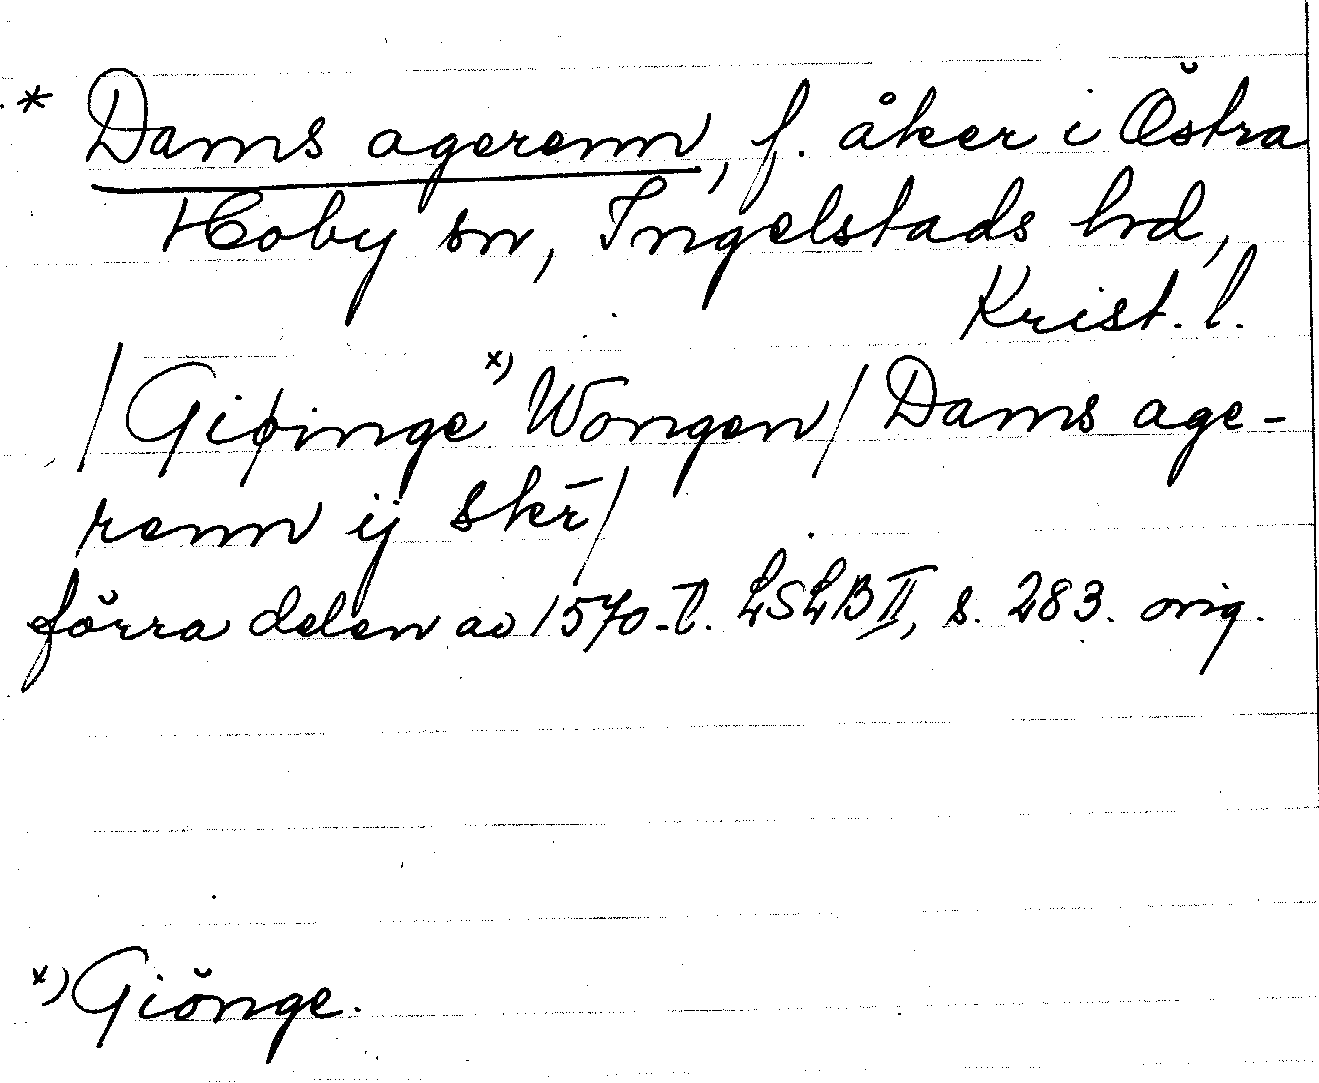 * Dams agerenn, f. åker i Östra
Hoby sn, Ingelstads hrd,
Krist. l.
/Giøinge x) Wongen/ Dams age-
renn ij skr̄/
förra delen av 1570-t. LSLB II, s. 283. orig.
x) Giönge.